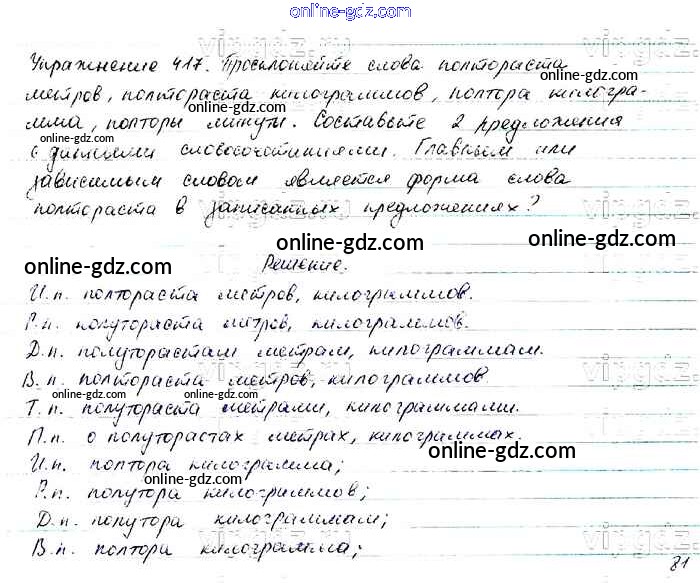 online-gdz.com
Упражнение 417. Просклоняйте слова полтораста
метров, полтораста килограммов, полтора килогра-
мма, полторы минуты. Составьте 2 предложения
с данными словосочетаниями. Главным или
зависимым словом является форма слова
полтораста в записанных предложениях?
Решение.
И.п. полтораста метров, килограммов.
Р.п. полутораста метров, килограммов.
Д.п. полуторастам метрам, килограммам.
В.п. полтораста метров, килограммов.
Т.п. полутораста метрами, килограммами.
П.п. о полуторастах метрах, килограммах.
И.п. полтора килограмма;
Р.п. полутора килограммов;
Д.п. полутора килограммам;
В.п. полтора килограмма;
81
online-gdz.com
online-gdz.com
online-gdz.com
online-gdz.com
online-gdz.com
online-gdz.com
online-gdz.com
online-gdz.com
online-gdz.com
online-gdz.com
online-gdz.com
online-gdz.com
online-gdz.com
online-gdz.com